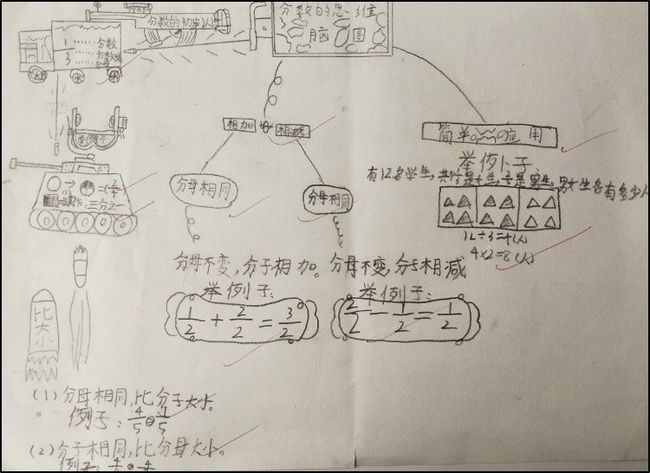 分数的初步认识
分数的思维
脑图
1 分数
分数线
3
相加
相减
简单的应用
举例子
分母相同
分母相同
有12名学生,其中1/3是女生,2/3是男生。男女生各有多少人
12÷3=4(人)
4×2=8(人)
分母不变,分子相加。
分母不变,分子相减
举例子:
举例子:
1/2+2/2=3/2
2/2-1/2=1/2
比大小
(1)分母相同,比分子大小。
例子:
(2)分子相同,比分母大小。
例子: